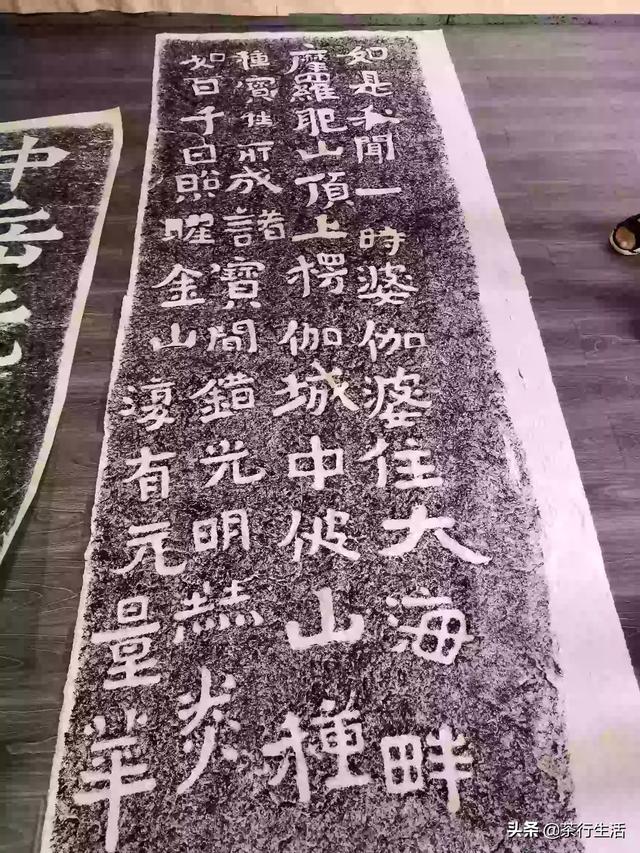 如是我聞一時婆伽婆住大海畔
摩羅耶山頂上楞伽城中彼山種
種寶性所成諸寶間錯光明赫炎
如百千日照曜金山復有无量華
中岳
头条 @茶行生活